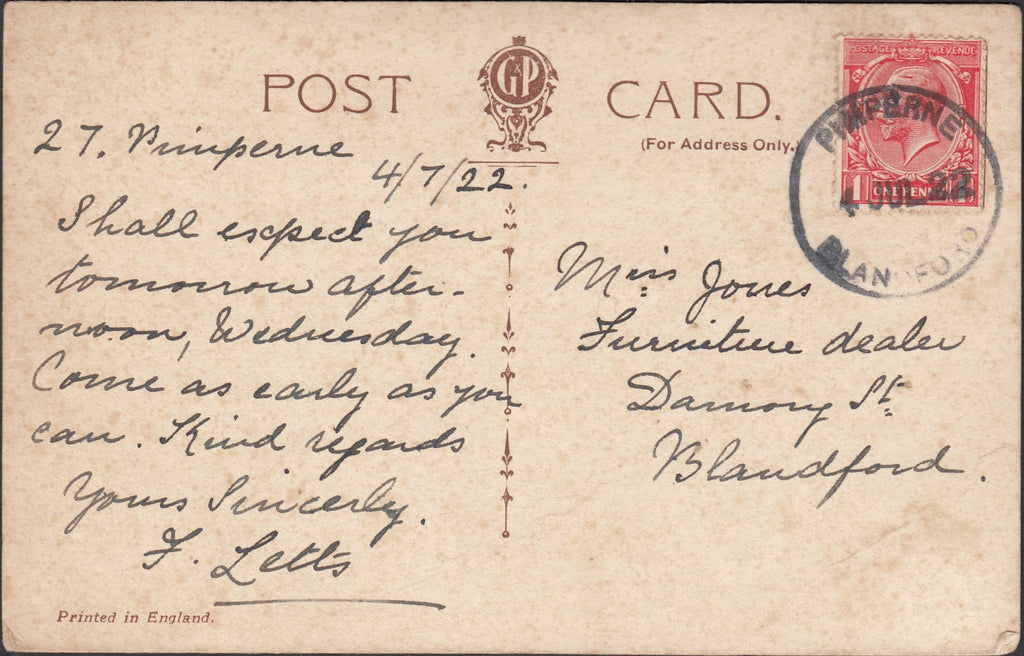 POST CARD.
G&P
(For Address Only.)
POSTAGE REVENUE
1 ONE PENNY
PIMPERNE
JUL 22
BLANDFORD
27. Pimperne
4/7/22.
Shall expect you
tomorrow after-
noon, Wednesday.
Come as early as you
can. Kind regards
Yours Sincerely.
F. Letts
Miss Jones
Furniture dealer
Damory St
Blandford.
Printed in England.